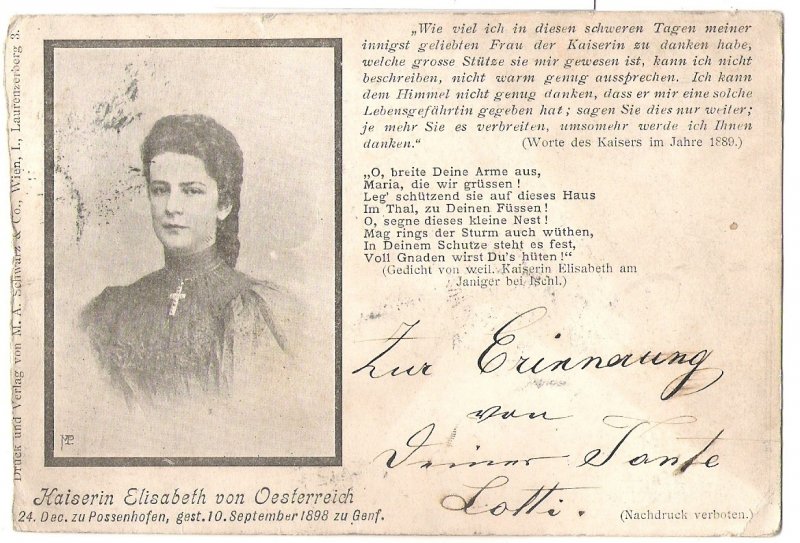 Druck und Verlag von M. A. Schwarz & Co., Wien, I., Laurenzerberg 3.
„Wie viel ich in diesen schweren Tagen meiner
innigst geliebten Frau der Kaiserin zu danken habe,
welche grosse Stütze sie mir gewesen ist, kann ich nicht
beschreiben, nicht warm genug aussprechen. Ich kann
dem Himmel nicht genug danken, dass er mir eine solche
Lebensgefährtin gegeben hat; sagen Sie dies nur weiter;
je mehr Sie es verbreiten, umsomehr werde ich Ihnen
danken.“ (Worte des Kaisers im Jahre 1889.)
„O, breite Deine Arme aus,
Maria, die wir grüssen!
Leg' schützend sie auf dieses Haus
Im Thal, zu Deinen Füssen!
O, segne dieses kleine Nest!
Mag rings der Sturm auch wüthen,
In Deinem Schutze steht es fest,
Voll Gnaden wirst Du's hüten!“
(Gedicht von weil. Kaiserin Elisabeth am
Janiger bei Ischl.)
Zur Erinnerung
von
Deiner Tante
Lotti.
MP
Kaiserin Elisabeth von Oesterreich
24. Dec. zu Possenhofen, gest. 10. September 1898 zu Genf.
(Nachdruck verboten.)